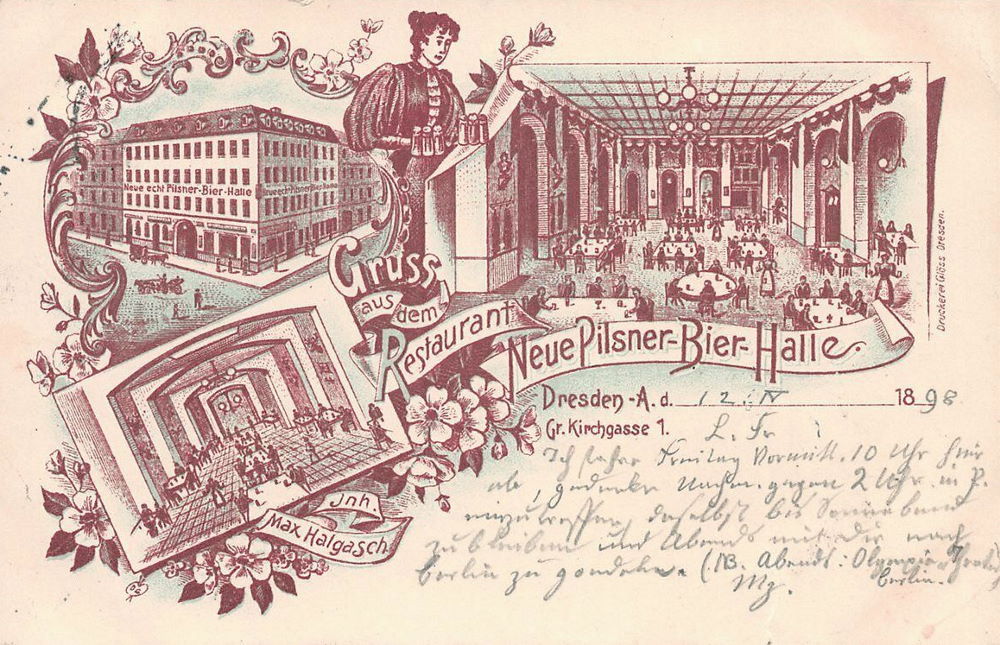 Neue echt Pilsner-Bier-Halle
Gruss
aus dem
Restaurant
Neue Pilsner-Bier-Halle.
Dresden-A. d. 12. IV 1898
Gr. Kirchgasse 1.
L. Fr
Ich fahre Freitag Vormitt. 10 Uhr hier
ab, gedenke Nachm. gegen 2 Uhr in P.
einzutreffen, daselbst bis Sonnabend
zu bleiben und Abends mit Dir nach
Berlin zu gondeln. (NB. Abends: Olympia-Theater
Berlin.
Mz.
Inh.
Max Halgasch
Druckerei Glöss Dresden.